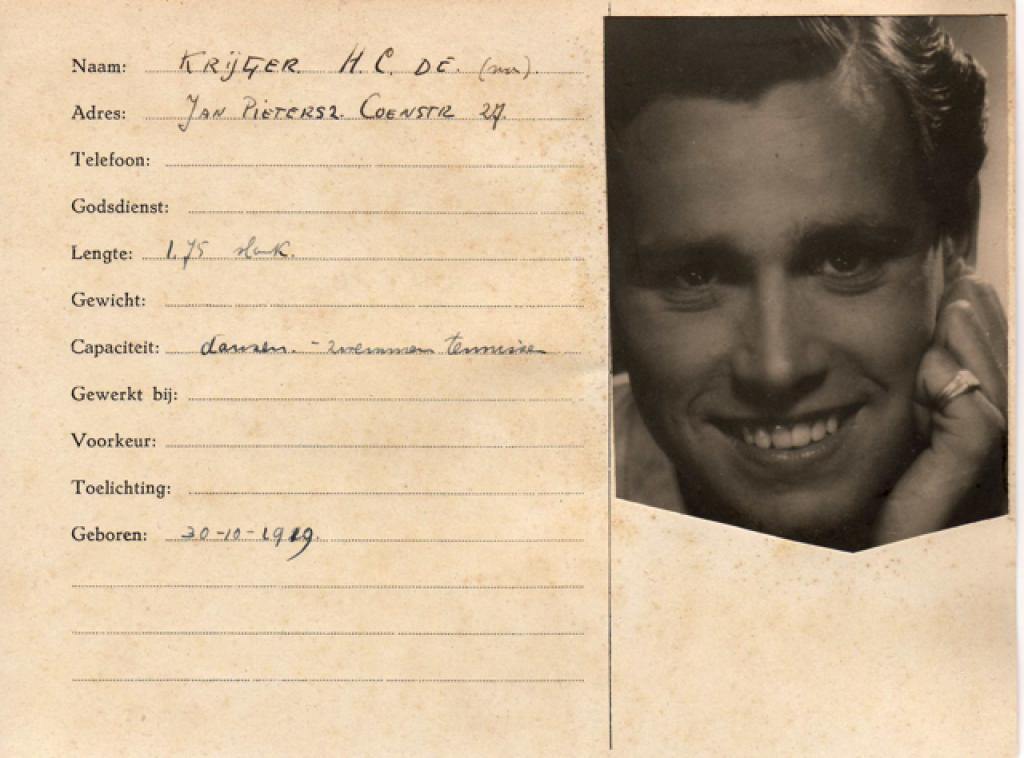 Naam: KRIJGER H. C. DE.
Adres: JAN PIETERSZ. COENSTR 27.
Telefoon:
Godsdienst:
Lengte: 1.75 slank.
Gewicht:
Capaciteit: dansen. - zwemmen tennissen
Gewerkt bij:
Voorkeur:
Toelichting:
Geboren: 30-10-1919.